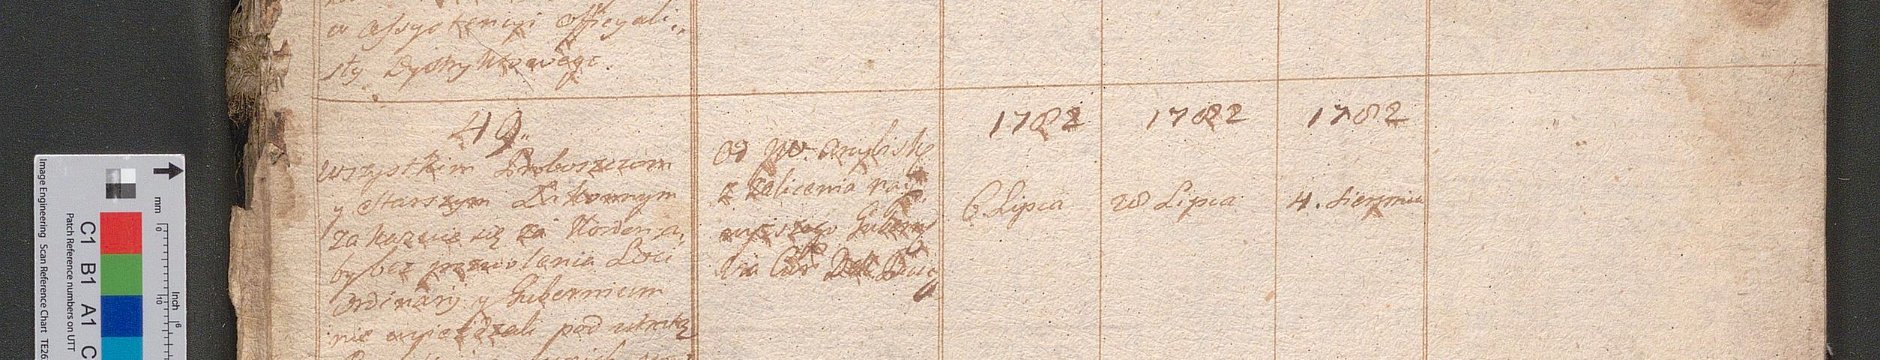 w assystencyi officyali,,
sty Dystryktowego.
49.
Wszystkim Proboszczom
y starszym Zakonnym
zakazuie się za Kordon a,
by bez pozwolenia Loci
Ordinarij y Gubernium
nie wyieżdżali pod utratą
Od
z zalecenia nay,,
wyższego Gubern
via Cir:
1782
6 Lipca
1782
28 Lipca
1782
4. Sierpnia
Image Engineering Scan Reference Chart TE26
Patch Reference numbers on UTT
C1 B1 A1 C
mm
0
10
inch